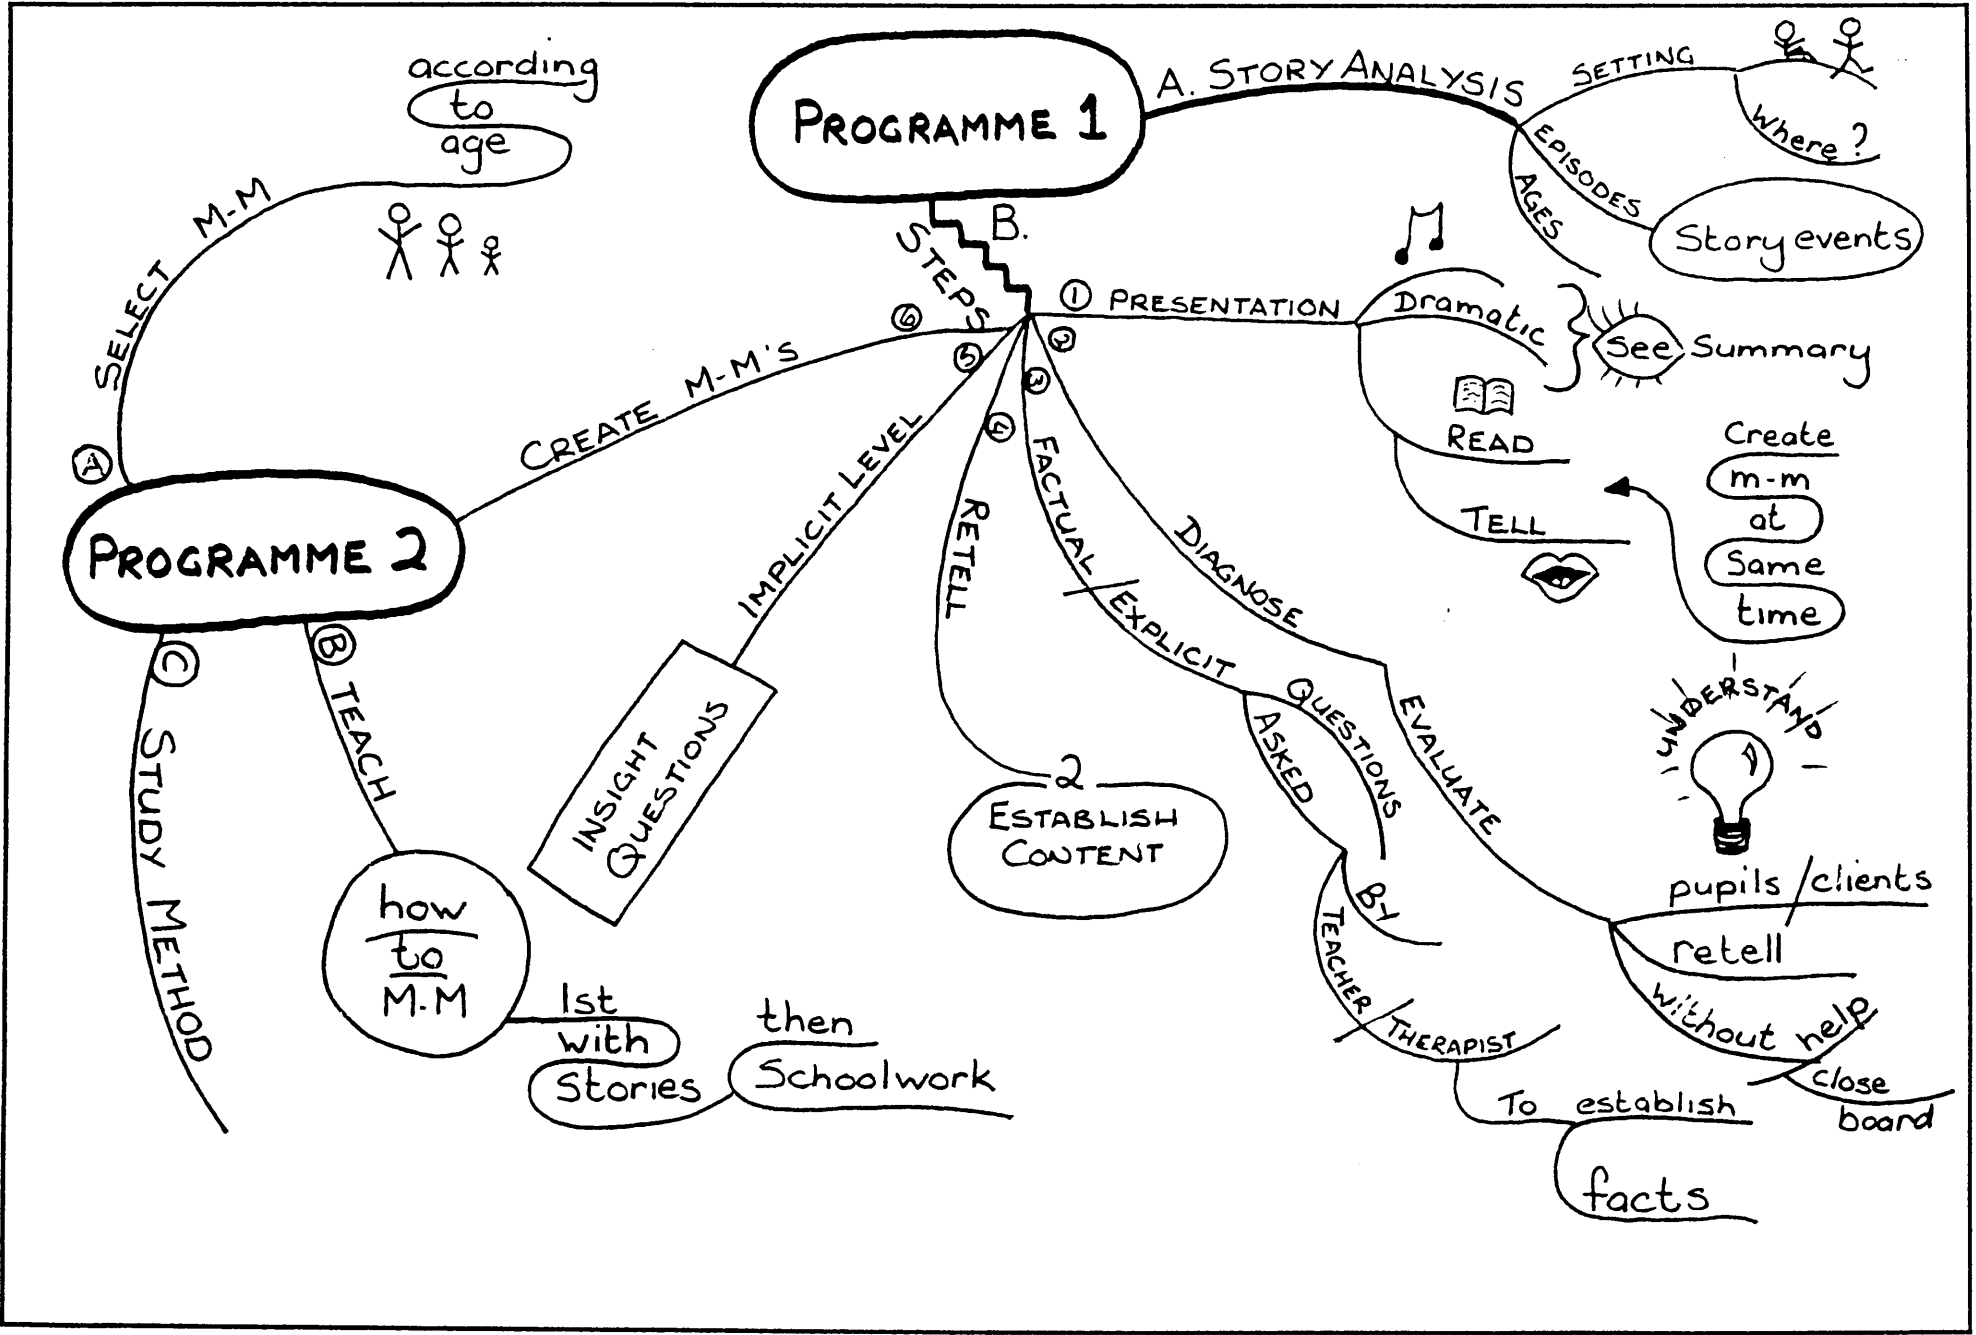 PROGRAMME 1
A. STORY ANALYSIS
SETTING
Where?
EPISODES
Story events
AGES
B.
STEPS
① PRESENTATION
Dramatic
See Summary
READ
TELL
Create
m-m
at
Same
time
②
DIAGNOSE
EVALUATE
UNDERSTAND
pupils / clients
retell
without help
close
board
③
FACTUAL / EXPLICIT
QUESTIONS
ASKED
BY
TEACHER / THERAPIST
To establish
facts
④
RETELL
2
ESTABLISH
CONTENT
⑤
IMPLICIT LEVEL
INSIGHT
QUESTIONS
⑥
CREATE M-M'S
PROGRAMME 2
Ⓐ
SELECT M-M
according
to
age
Ⓑ TEACH
how
to
M-M
1st
with
Stories
then
Schoolwork
Ⓒ STUDY METHOD